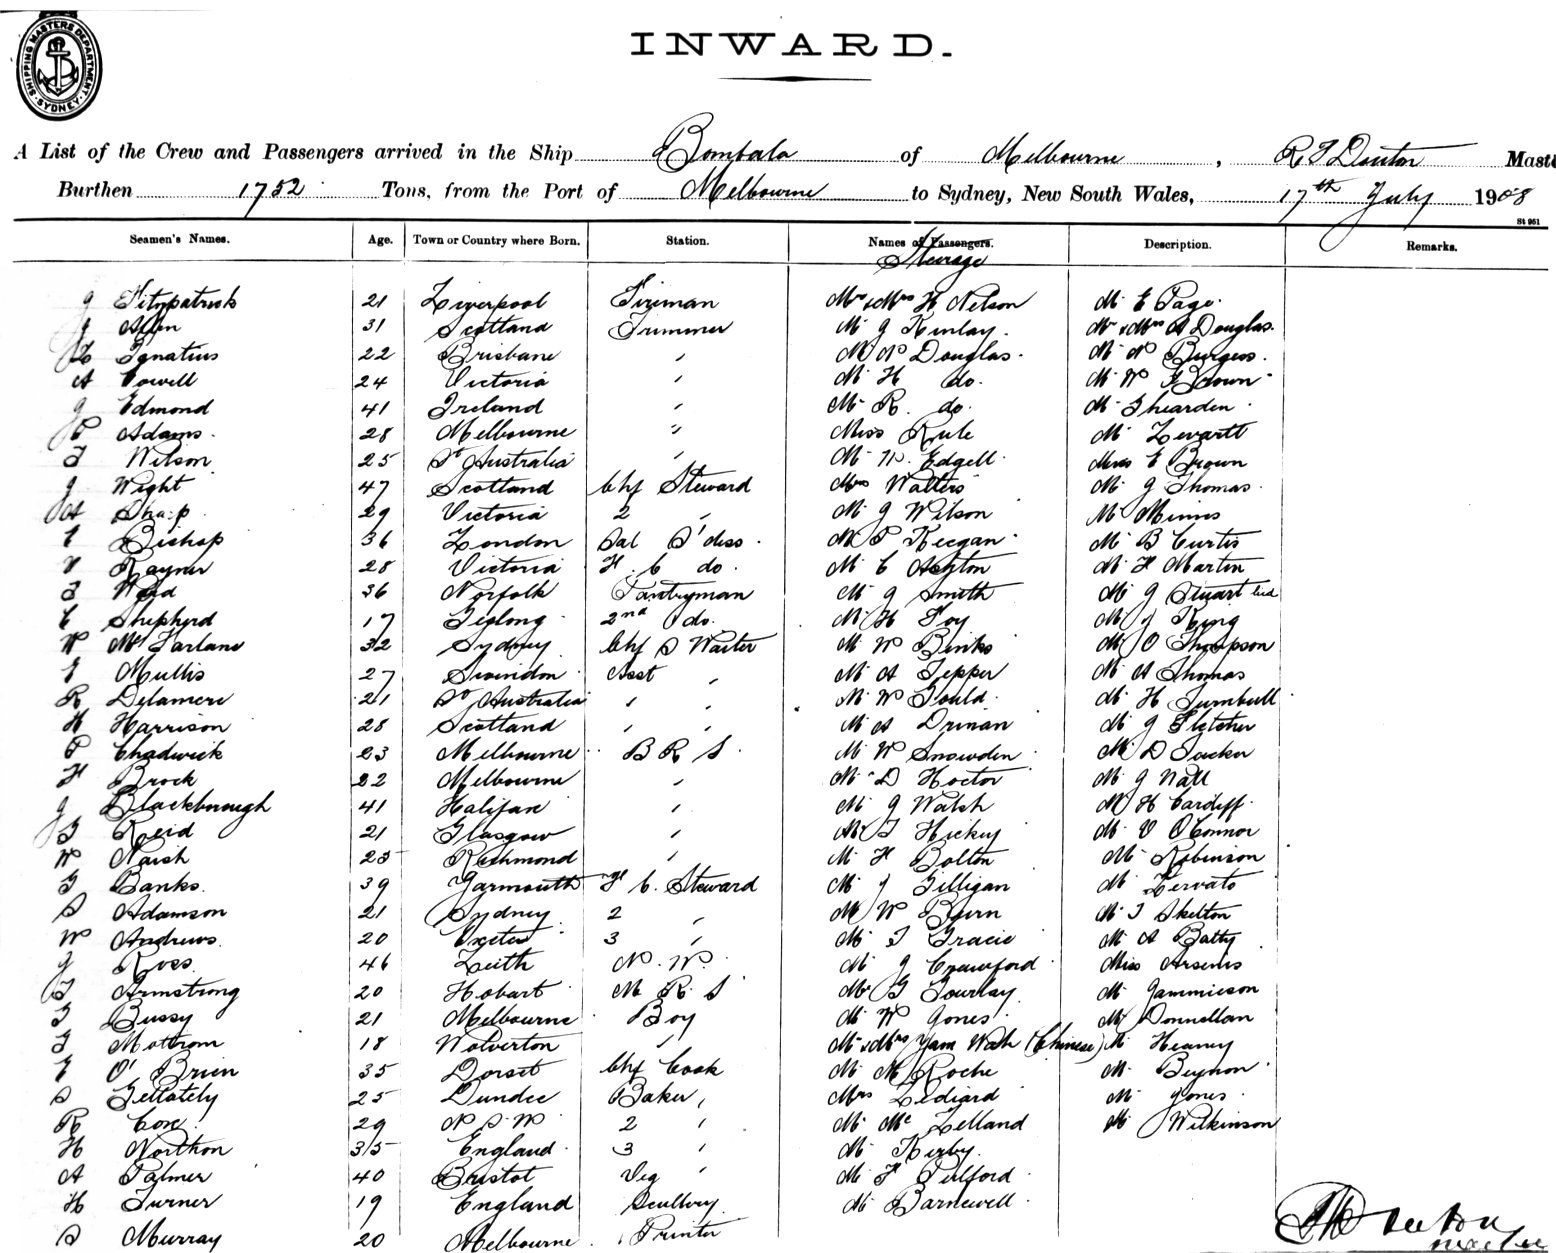 SHIPPING MASTERS DEPARTMENT SYDNEY
INWARD.
A List of the Crew and Passengers arrived in the Ship Bombala of Melbourne, R T Dauton Maste
Burthen 1752 Tons, from the Port of Melbourne to Sydney, New South Wales, 17th July 1908
St 951
Seamen's Names. Age. Town or Country where Born. Station. Names of Passengers. Description. Remarks.
Steerage
J Fitzpatrick 21 Liverpool Fireman Mr & Mrs H Nelson Mr E Page
J Allen 31 Scotland Trimmer Mr J Kinlay Mr & Mrs A Douglas
Ignatius 22 Brisbane " Mr W Douglas Mr W Burgess
A Cowell 24 Victoria " Mr H do. Mr W G Brown
J Edmond 41 Ireland " Mr R. do. Mr Shearden
P Adams 28 Melbourne " Miss Rule Mr Levartt
T Wilson 25 So Australia " Mr W. Edgell Miss E Brown
J Wight 47 Scotland Chf Steward Mrs Walters Mr J Thomas
A Sharp 29 Victoria 2 " Mr J Wilson Mr Minns
E Bishop 36 London Sal S'diss Mr P Keegan Mr B Curtis
V Rayner 28 Victoria F. C do. Mr C Ashton Mr F Martin
T Ward 36 Norfolk Pantryman Mr J Smith Mr J Stuart
C Shepherd 17 Geelong 2nd do. Mr H Foy Mr J King
W McFarlane 32 Sydney Chf S Waiter Mr W Binks Mr O Thompson
E Mullis 27 Swindon Asst " Mr A Tepper Mr A Thomas
R Delamere 21 So Australia " " Mr W Gould Mr H Turnbull
H Harrison 28 Scotland " " Mr A Drinan Mr J Fletcher
P Chadwick 23 Melbourne B R S Mr W Snowden Mr D Tucker
F Brock 22 Melbourne " Mr D Hoctor Mr J Nall
J Blackborough 41 Halifax " Mr J Walsh Mr H Cardiff
T Reid 21 Glasgow " Mr T Hickey Mr V O'Connor
W Naish 25 Richmond " Mr F Bolton Mr Robinson
G Banks 39 Yarmouth F C. Steward Mr J Gilligan Mr Zervato
S Adamson 21 Sydney 2 " Mr W Burn Mr T Skelton
W Andrews 20 Exeter 3 " Mr T Gracie Mr A Batty
J Ross 46 Leith N. W. Mr J Crawford Miss Arsenis
T Armstrong 20 Hobart M R S Mr G Gourlay Mr Jammieson
G Bussy 21 Melbourne Boy Mr W Jones Mr Donnellan
G Mottrom 18 Wolverton " Mr & Mrs Yam Wah (Chinese) Mr Heaney
E O'Brien 35 Dorset Chf Cook Mr M Roche Mr Beynon
S Gellately 25 Dundee Baker Mrs Lediard Mr Jones
R Cox 29 N S W 2 " Mr McLelland Mr Wilkinson
H Northon 35 England 3 " Mr Kirby
A Palmer 40 Bristol Veg " Mr F Pulford
H Turner 19 England Scullery Mr Barnewell
S Murray 20 Melbourne Printer